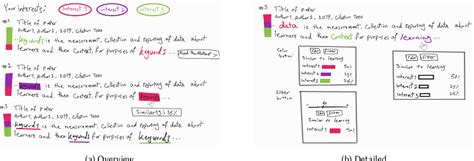 Your Interests: interest 1 interest 2 interest 3
#1 Title of Paper
Author1, Author2, 2019, Citation 7000
keyword1 is the measurement, Collection and reporting of data about
learners and their Context, for purposes of keyword1 ...
Read the Abstract
#2 Title of Paper
Author1, Author2, 2019, Citation 7000
is the measurement, Collection and reporting of data about
learners and their Context, for purposes of
Similarity: 51%
#3 Title of Paper
Author1, Author2, 2019, Citation 7000
keywords is the measurement, Collection and reporting of data about
learners and their Context, for purposes of keywords
(a) Overview
#1 Title of Paper
Author1, Author2, 2019, Citation 7000
data is the measurement, Collection and reporting of data about
learners and their Context for purposes of learning...
Color
button
Color Filter
Similar to learning
interest 1
interest 2
interest 3
Filter
button
Color Filter
Similar to learning
interest 1
interest 2
interest 3
Color Filter
Similar to learning
interest 1
interest 2
interest 3
(b) Detailed